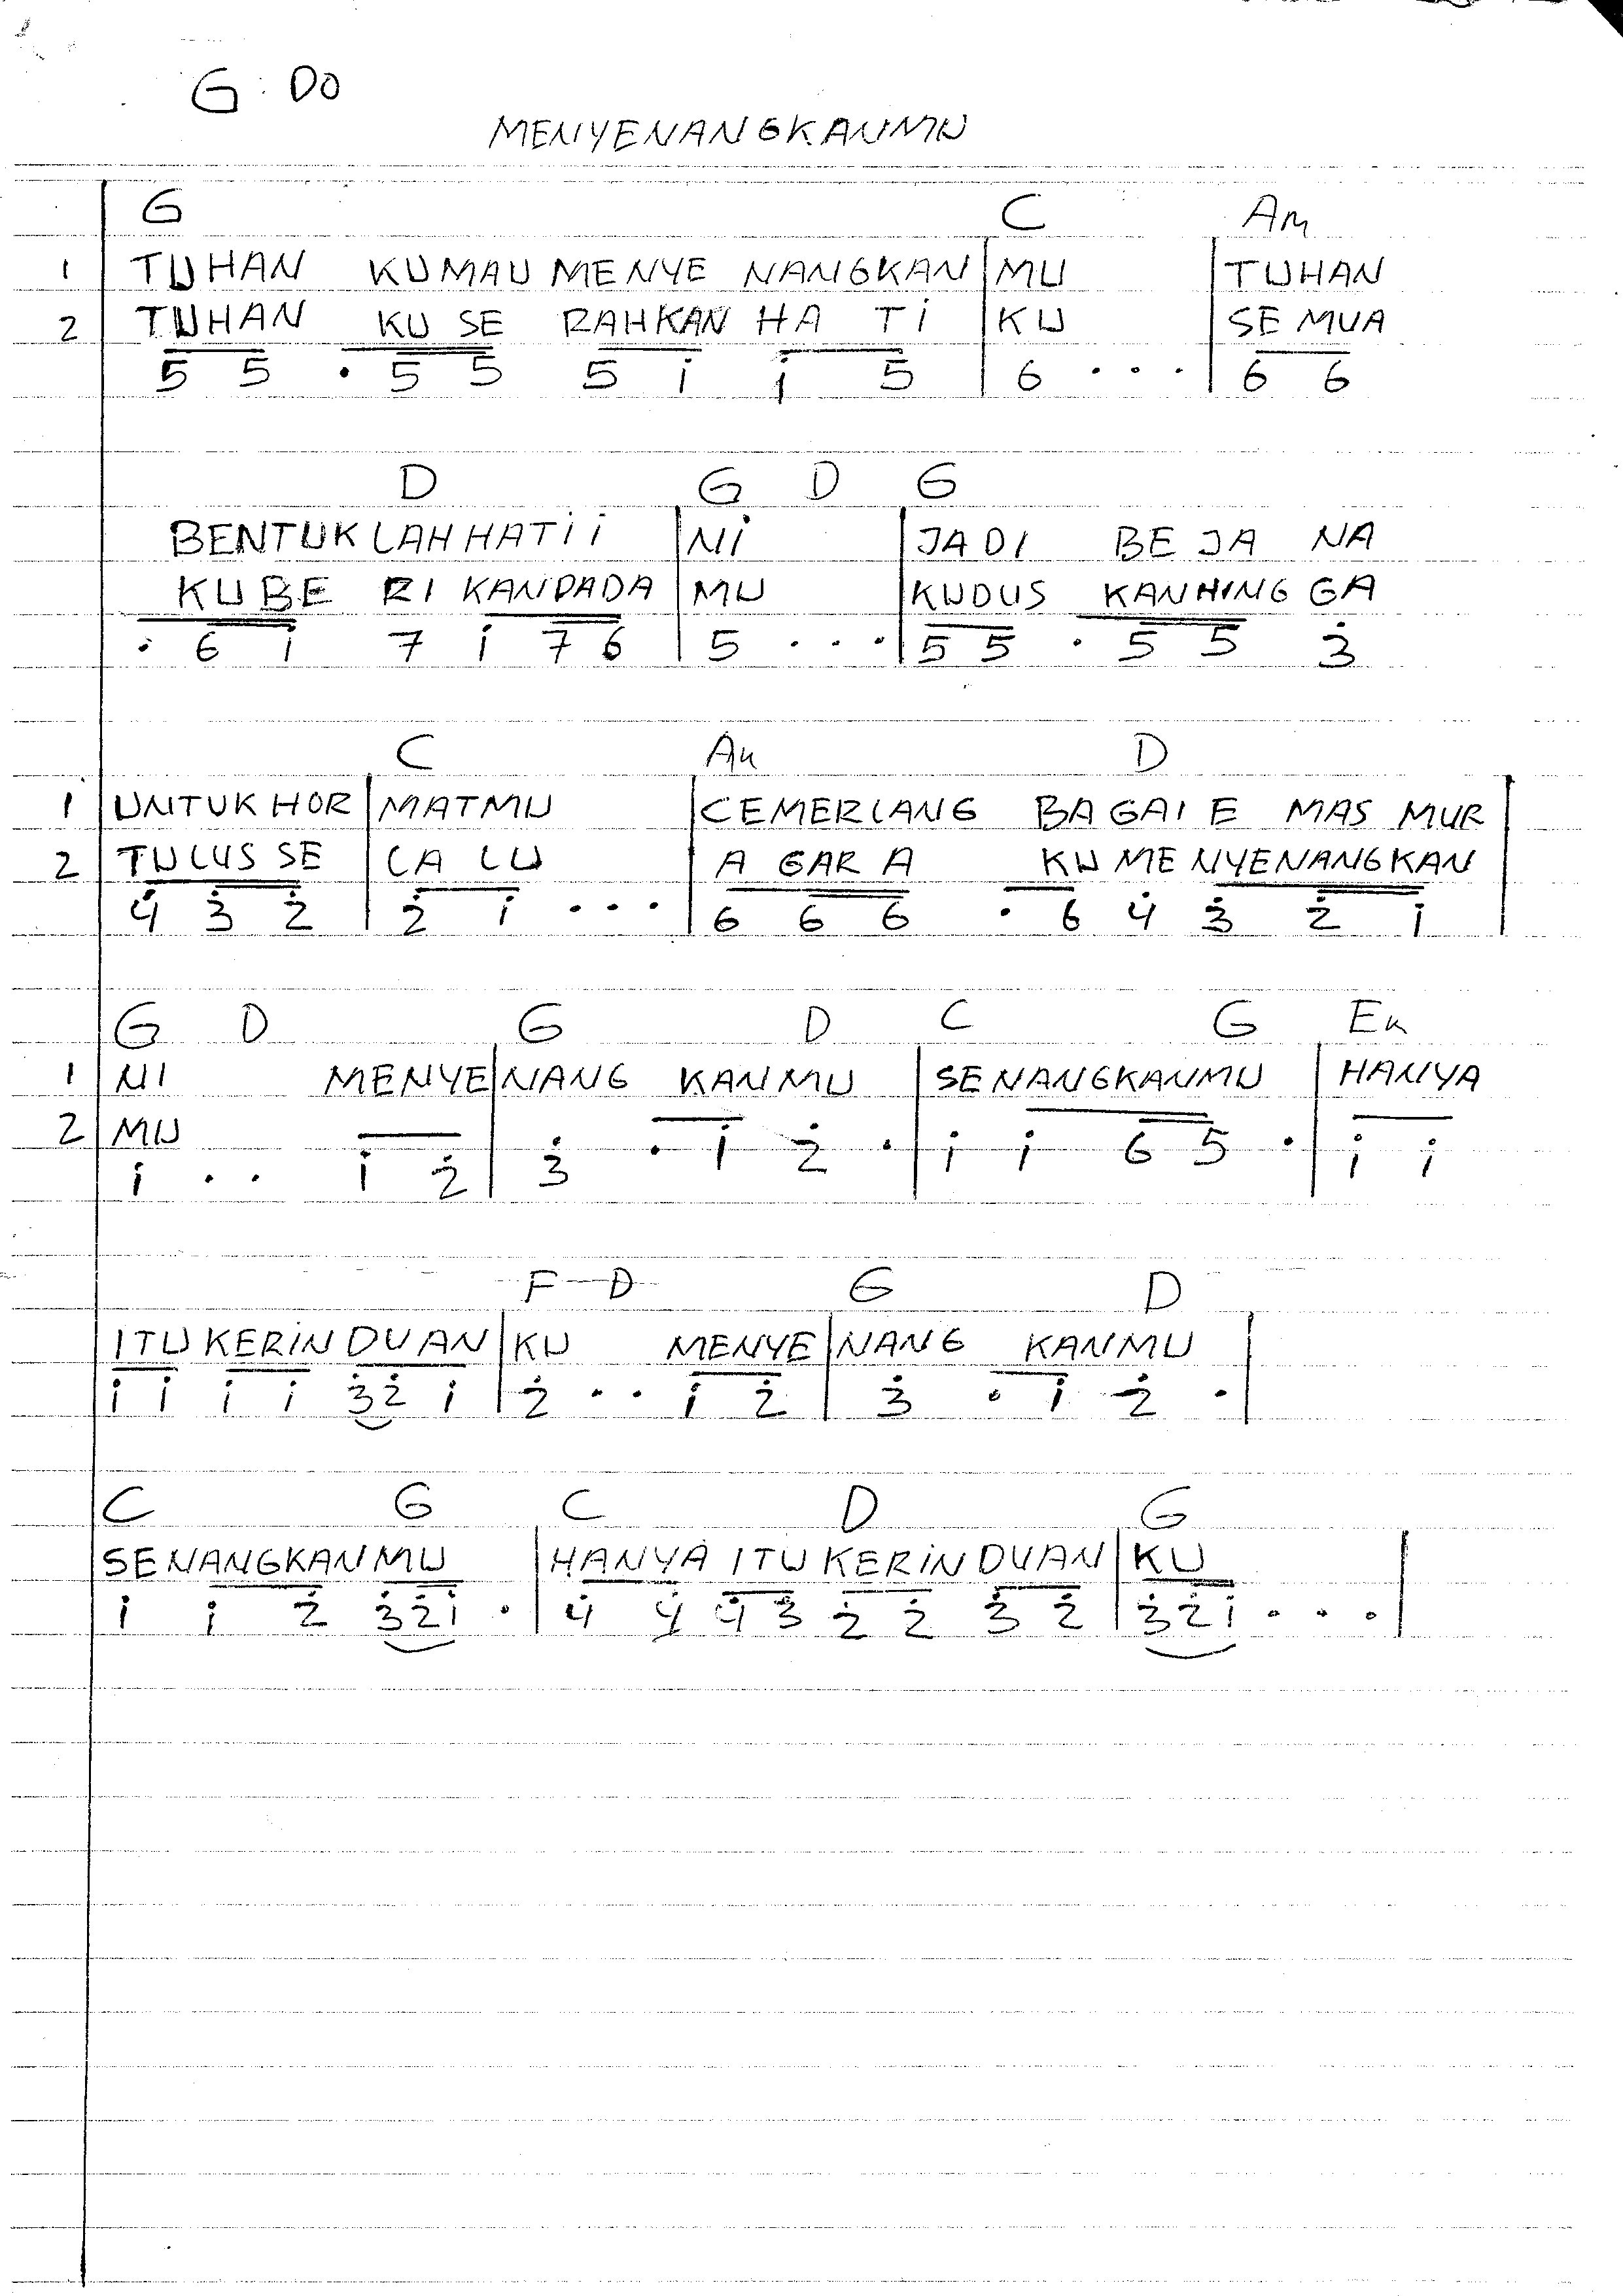 G : DO
MENYENANGKANMU
G C Am
1 TUHAN KUMAU MENYE NANGKAN | MU | TUHAN
2 TUHAN KU SE RAHKAN HA TI | KU | SE MUA
5 5 . 5 5 5 i i 5 | 6 . . . | 6 6
D G D G
BENTUK LAH HATI I | NI | JADI BE JA NA
KU BE RI KAN PADA | MU | KUDUS KAN HING GA
. 6 i 7 i 7 6 | 5 . . . | 5 5 . 5 5 3̇
C Am D
1 UNTUK HOR | MATMU | CEMERLANG BAGAI E MAS MUR |
2 TULUS SE | LA LU | A GAR A KU ME NYENANGKAN |
4̇ 3̇ 2̇ | 2̇ i . . . | 6 6 6 . 6 4̇ 3̇ 2̇ i |
G D G D C G Em
1 NI MENYE | NANG KANMU | SENANGKANMU | HANYA
2 MU
i . . i 2̇ | 3̇ . i 2̇ . | i i 6 5 . | i i
F D G D
ITU KERIN DUAN | KU MENYE | NANG KANMU |
i i i i 3̇ 2̇ i | 2̇ . . i 2̇ | 3̇ . i 2̇ . |
C G C D G
SENANGKANMU | HANYA ITU KERIN DUAN | KU |
i i 2̇ 3̇ 2̇ i . | 4̇ 4̇ 4̇ 3̇ 2̇ 2̇ 3̇ 2̇ | 3̇ 2̇ i . . . |